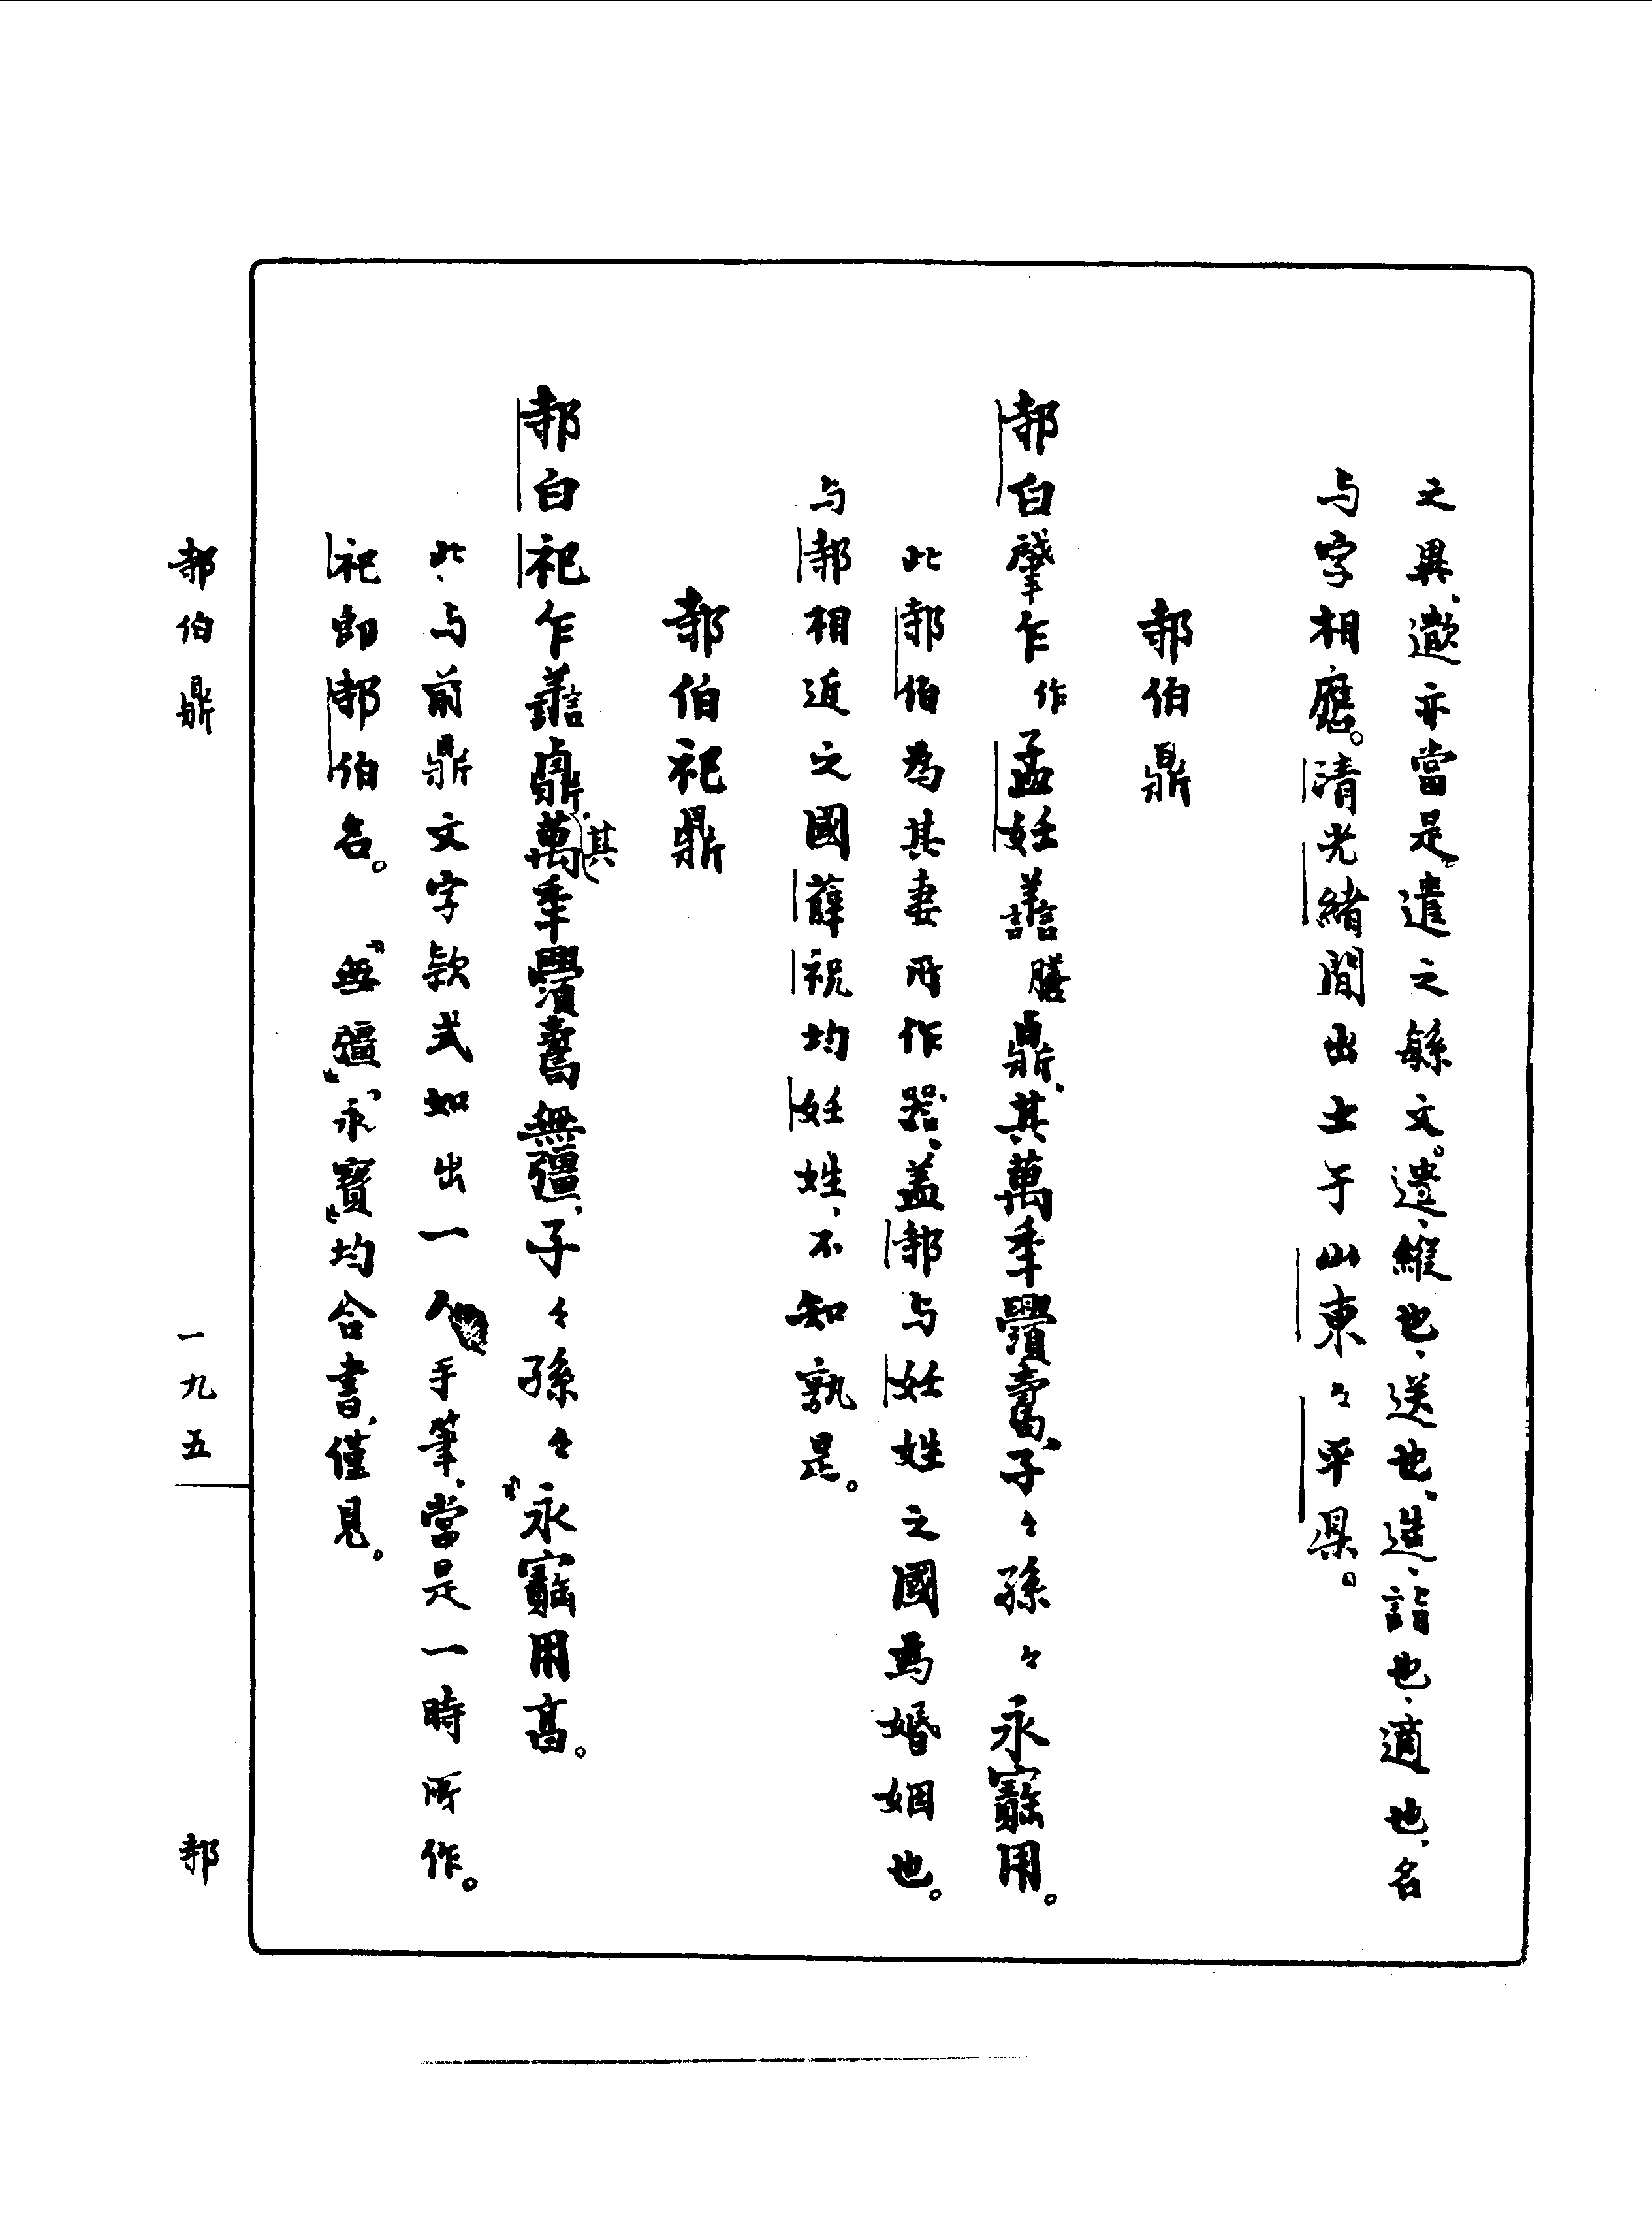 之異，遬亦當是遣之緐文。遣、縱也、送也、造、詣也、適也、名
与字相應。清光緒間出土于山東々平県。
邿伯鼎
邿白肈乍作孟妊譱膳鼎，其萬年釁壽，子々孫々永寶用。
此邿伯為其妻所作器，盖邿与妊姓之國為婚姻也。
与邿相近之國薛祝均妊姓，不知孰是。
邿伯祀鼎
邿白祀乍譱鼎，其萬年釁壽無彊，子々孫々永寶用亯。
此、与前鼎文字款式如出一人手筆，當是一時所作。
祀即邿伯名。“無彊”、“永寶”均合書，僅見。
邿伯鼎 一九五 邿